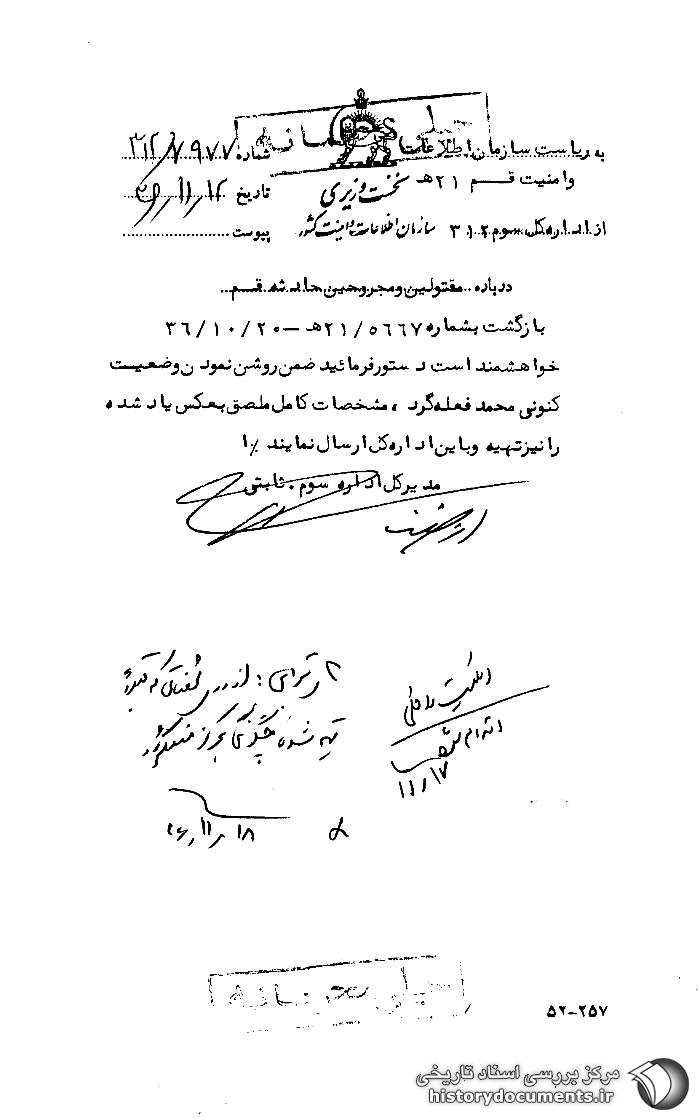 خیلی محرمانه
به ریاست سازمان اطلاعات
شماره ۳۱۲/۷۹۷۷
و امنیت قم ۲۱ هـ
نخست وزیری
تاریخ ۳۶/۱۱/۱۲
از اداره کل سوم ۳۱۲
سازمان اطلاعات و امنیت کشور
پیوست
درباره مقتولین و مجروحین حادثه قم
بازگشت بشماره ۲۱/۵۶۶۷هـ - ۳۶/۱۰/۲۰
خواهشمند است دستور فرمائید ضمن روشن نمودن وضعیت
کنونی محمد فعله گرد ، مشخصات کامل ملصق بعکس یاد شده
را نیز تهیه و باین اداره کل ارسال نمایند ٪ا
مدیر کل اداره سوم . ثابتی
از طرف
اقدام شود
۱۱/۱۷
تهیه شده چگونگی بمرکز منعکس گردد
۳۶/۱۱/۱۸
خیلی محرمانه
۵۲-۲۵۷
مرکز بررسی اسناد تاریخی
historydocuments.ir